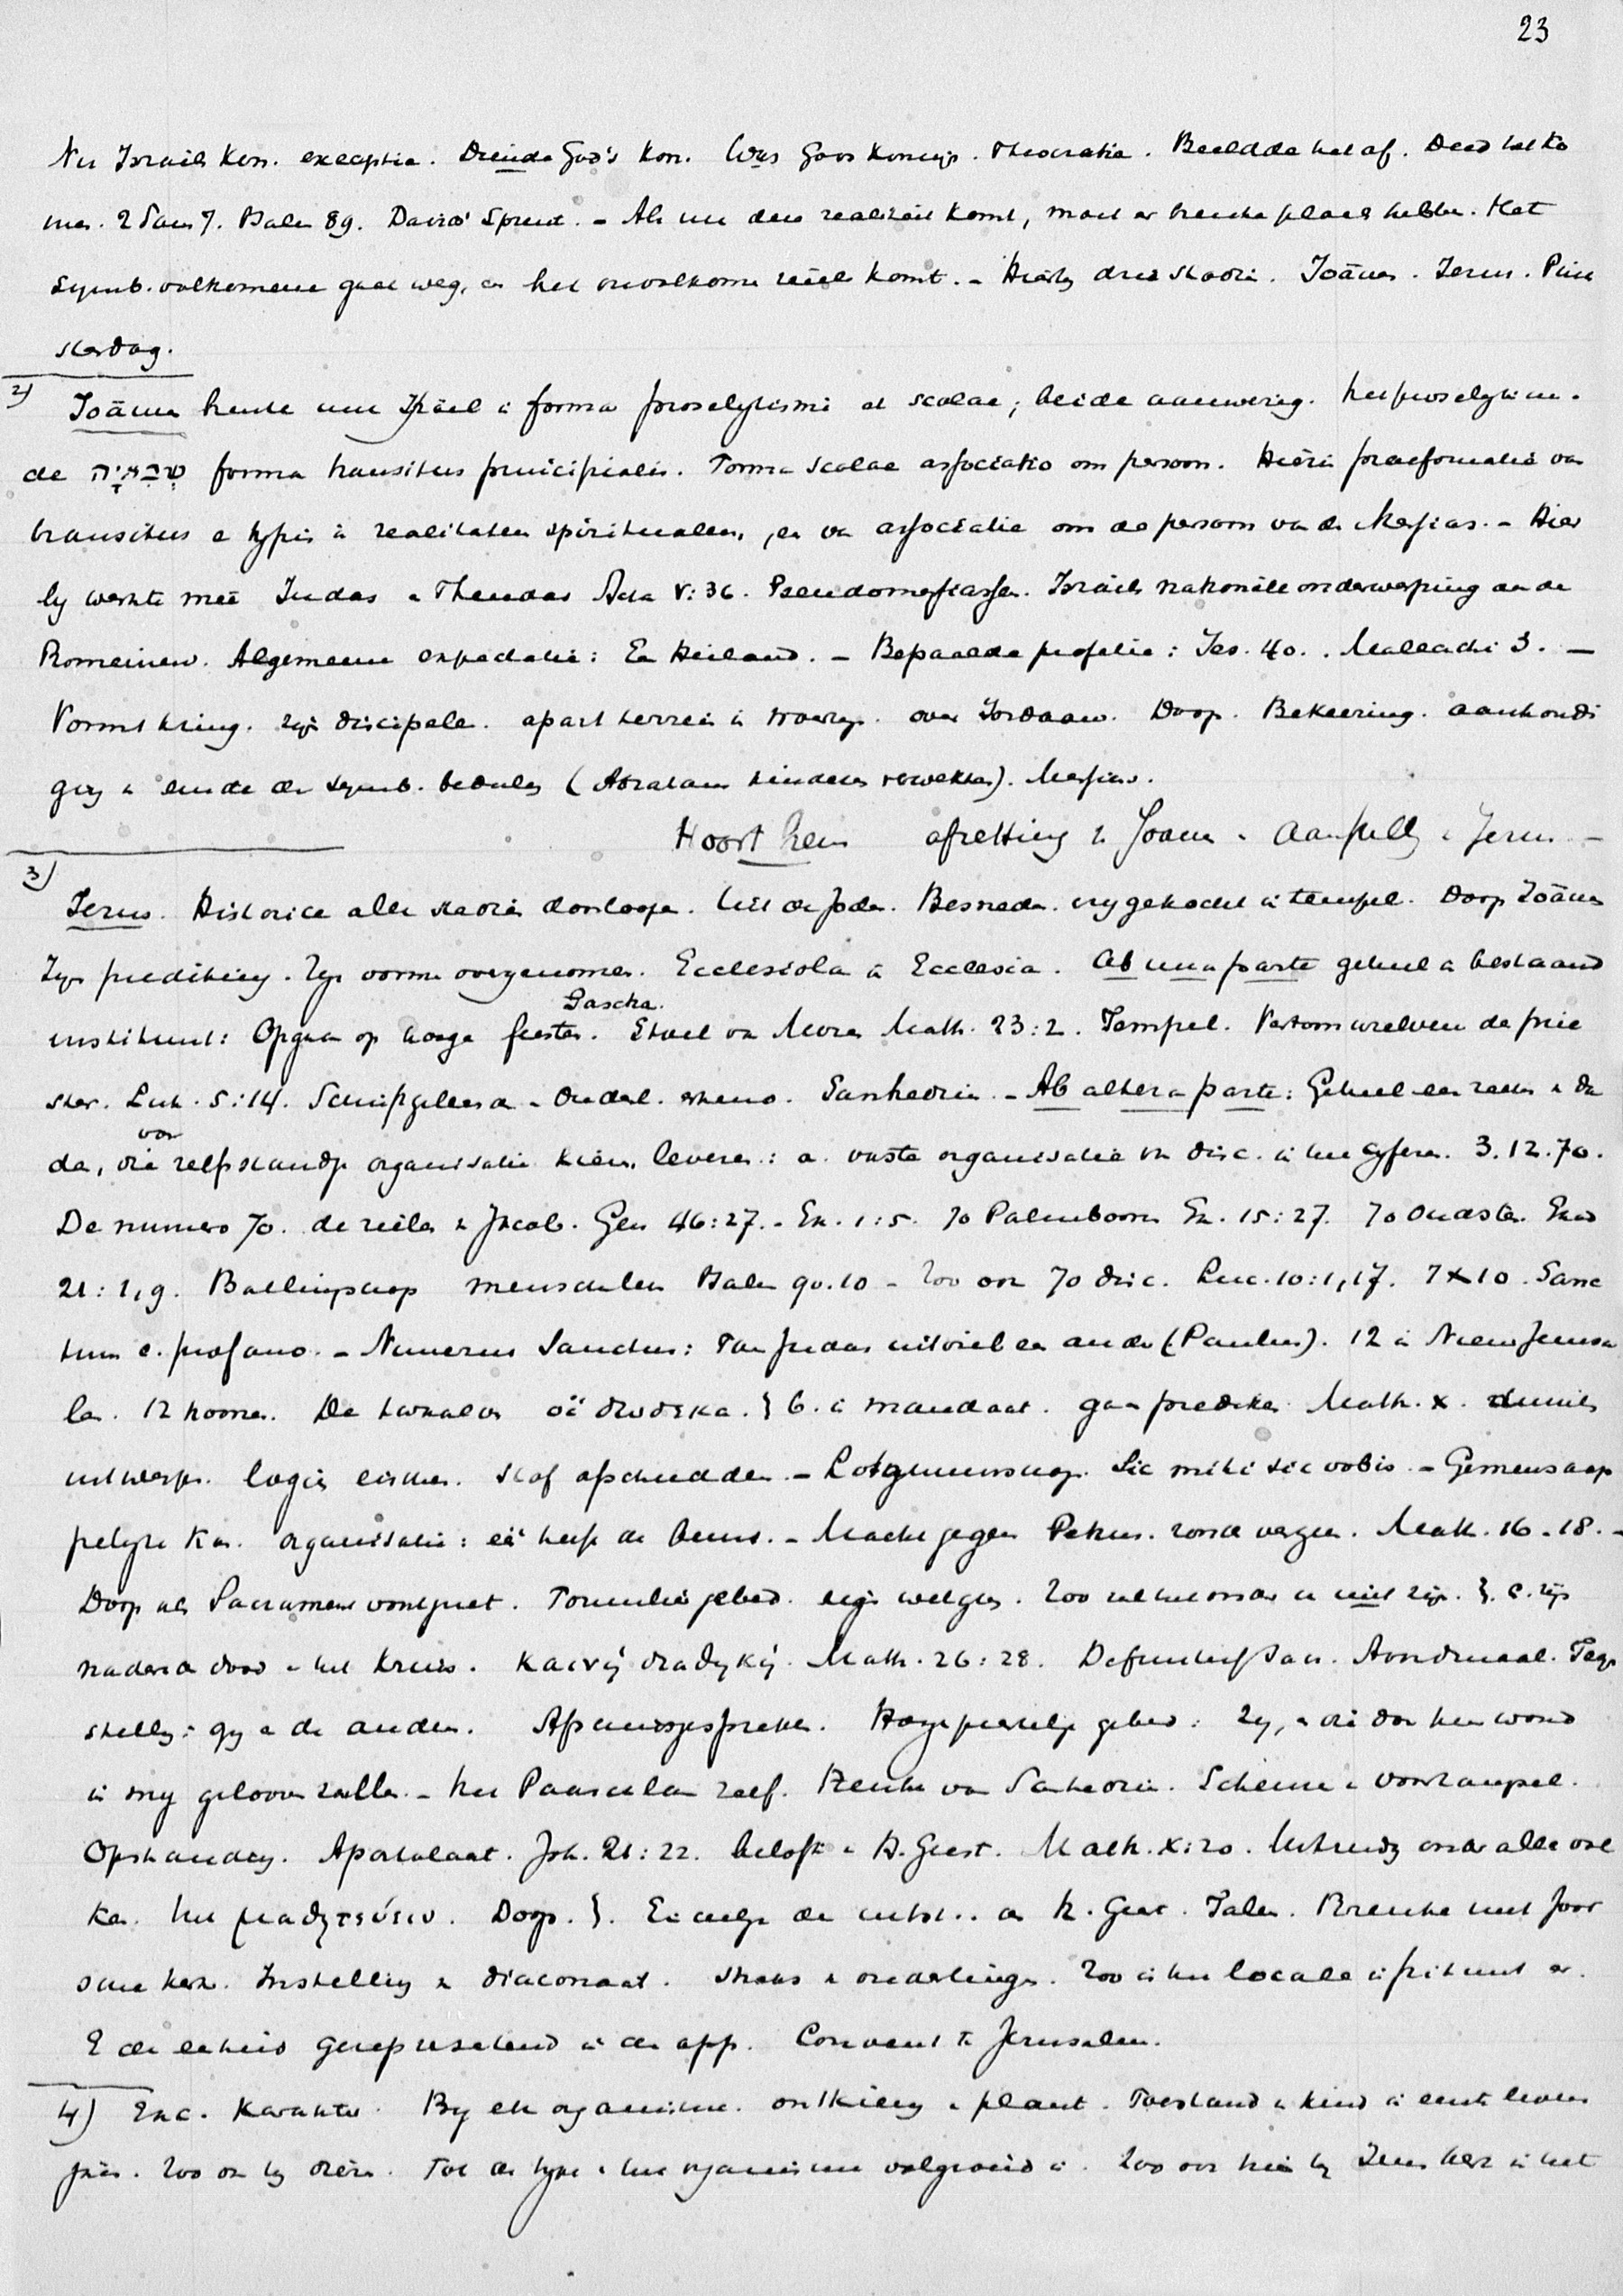 23
Nu Israels Kon. exceptie. Diende God's Kon. Was Gods Koningr. Theocratie. Beeldde het af. Deed het ko
men. 2 Sam 7. Psalm 89. Davids Spruit. - Als nu deze realiteit komt, moet er breuke plaats hebben. Het
symb. volkomene gaat weg, en het onvolkomen reëele komt. - Hierbij drie stadiën. Joännes. Jezus. Pink
sterdag.
2) Joännes breekt nu Israel in forma proselytismi et scolae; beide aanwezig. Het proselytisme.
de forma transitus principialis. Forma scolae associatio om persoon. Hierin praeformatie van
transitus e typis in realitatem spiritualem, en van associatie om de persoon van de Messias. - Hier
by werkte meê Judas en Theudas Acta V:36. Pseudomessiassen. Israëls nationale onderwerping aan de
Romeinen. Algemeene expectatie: Een Heiland. - Bepaalde profetie: Jes. 40. Maleachi 3. -
Vormt kring. zijn discipelen. apart terrein in woestijn. over Jordaan. Doop. Bekeering. aankondi
ging en einde der symb. bedeeling (Abraham kinderen verwekken). Messias.
Hoort hem aftreding v. Joann. en aanstelling v. Jezus -
3) Jezus. Historice alle stadiën doorloopen. Uit de Joden. Besneden. vrygekocht in tempel. Doop Joännes
Zijn prediking. Zijn vorm overgenomen. Ecclesiola in Ecclesia. Ab una parte geheel in bestaand
Pascha.
instituut: Opgaan op hooge feesten. Stoel van Mozes Math. 23:2. Tempel. Vertoon uzelven de prie
ster. Luk. 5:14. Schriftgeleerden - Ouderl. erkend. Sanhedrin. - Ab altera parte: Geheel een reeks van da
voor
den, die zelfstandige organisatie kiem leveren: a. vaste organisatie van disc. in hun cyfers. 3. 12. 70.
De numero 70. de zielen v. Jacob. Gen 46:27. - Ex. 1:5. 70 Palmboomen Ex. 15:27. 70 Oudsten. Exod
21:1,9. Ballingschap menschenleven Psalm 90.10 - Zoo ook 70 disc. Luc. 10:1,17. 7x10. Sanc
tum e. profano. - Numerus Sanctus: Toen Judas uitviel een ander (Paulus). 12 in Nieuw Jerusa
lem. 12 troonen. De twaalven οἱ δώδεκα. } b. in mandaat. gaan prediken Math. X. duivels
uitwerpen. logies eischen. Stof afschudden. - Lotgemeenschap. Sic mihi sic vobis. - Gemeenschap
pelyke kas. organisatie: één heeft de beurs. - Macht gegeven Petrus. zonde vergeven. Math. 16-18. -
Doop als Sacrament voortgezet. Formuliergebed. eigen wetgev. Zoo zal het onder u niet zijn. }. c. zijn
naderen dood en het kruis. καινὴ διαθήκη. Math. 26:28. Definitief Sacr. Avondmaal. Tegen
stelling: gy en de anderen. Afscheidsgesprekken. Hoogepriesterlijk gebed: Zy, en die door hun woord
in my gelooven zullen. - Het Paaschlam zelf. Breuke van Sanhedrin. Scheure v. voorhangsel.
Opstanding. Apostolaat. Joh. 21:22. belofte v. H. Geest. Math. X:20. Uitzending onder alle vol
ken. Het μαθητεύειν. Doop. }. Eindelijk de uitst. van H. Geest. Talen. Breuke met Jood
sche kerk. Instelling v. diaconaat. straks v. ouderlingen. Zoo is het locale instituut er.
E de eenheid gerepresenteerd in de app. Convent te Jerusalem.
4) Enc. Karakter. By elk organisme. ontkiemen v. plant. Toestand v. kind in eerste levens
jaren. Zoo ook by dieren. Tot de type v. het organisme volgroeid is. Zoo ook hier by Jezus kerk is het